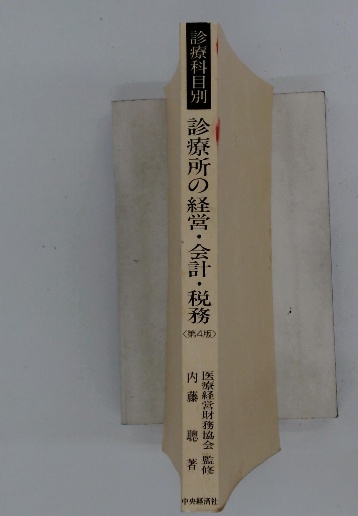 診療科目別
診療所の経営・会計・税務
〈第4版〉
医療経営財務協会 監修
内藤 聰 著
中央経済社